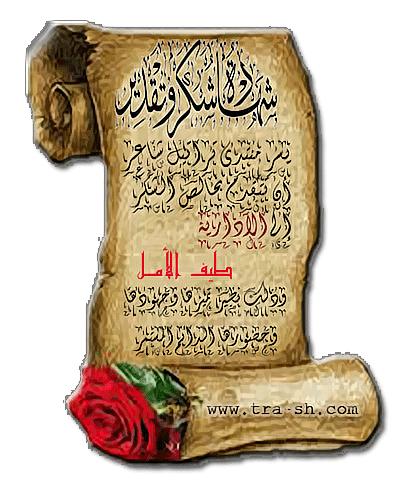 شهادة شكر وتقدير
يسر منتدى تراتيل شاعر
أن يتقدم بخالص الشكر
إلى الإدارية
طيف الأمل
وذلك نظير تميزها وجهودها
وحضورها الدائم المستمر
www.tra-sh.com